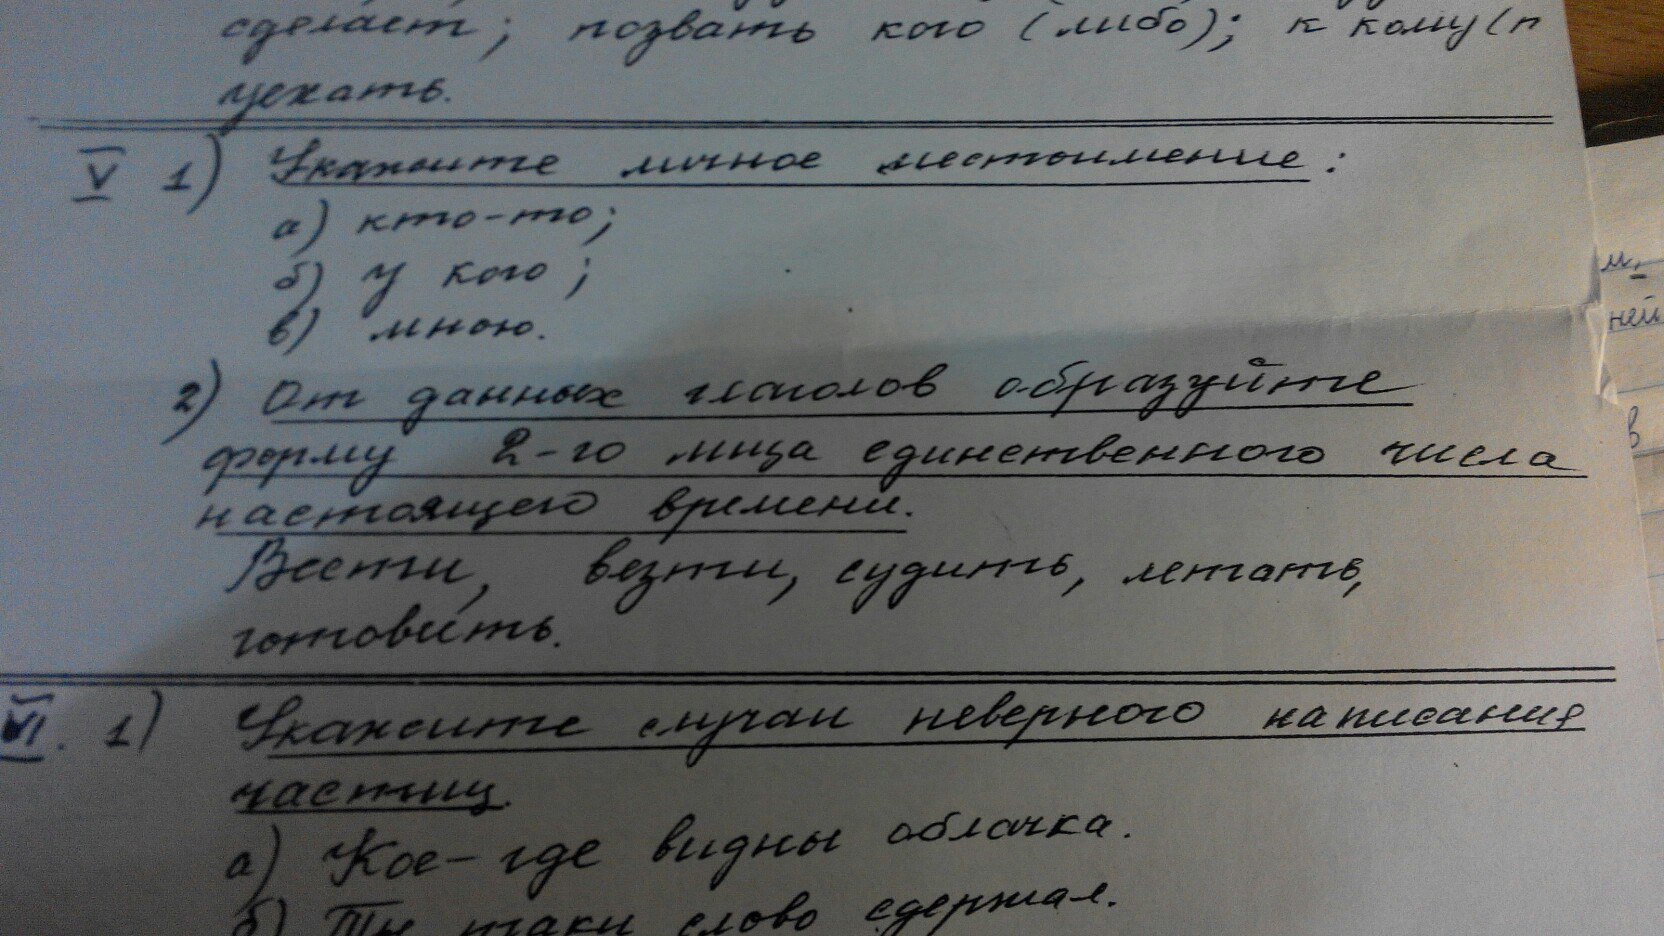 сделает; позвать кого (либо); к кому (п
уехать.
V 1) Укажите личное местоимение:
а) кто-то;
б) у кого;
в) мною.
2) От данных глаголов образуйте
форму 2-го лица единственного числа
настоящего времени.
Вести, везти, судить, летать,
готовить.
VI. 1) Укажите случаи неверного написания
частиц.
а) Кое-где видны облачка.
б) Ты таки слово сдержал.
м.
ней
в